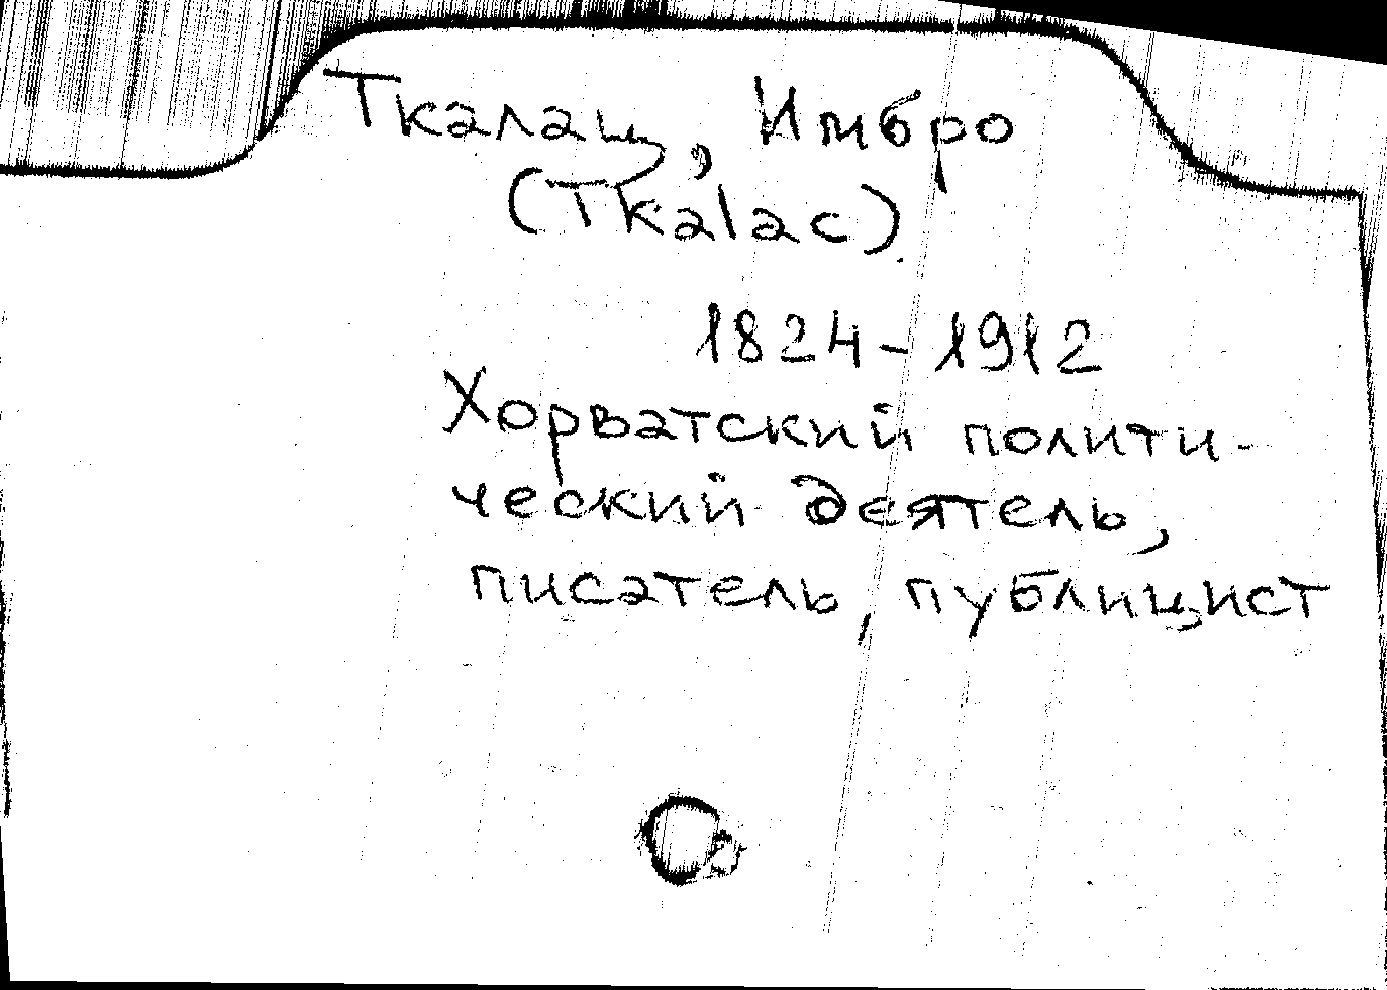 Ткалац, Имбро
(Tkalac)
1824-1912
Хорватский полити-
ческий деятель,
писатель, публицист